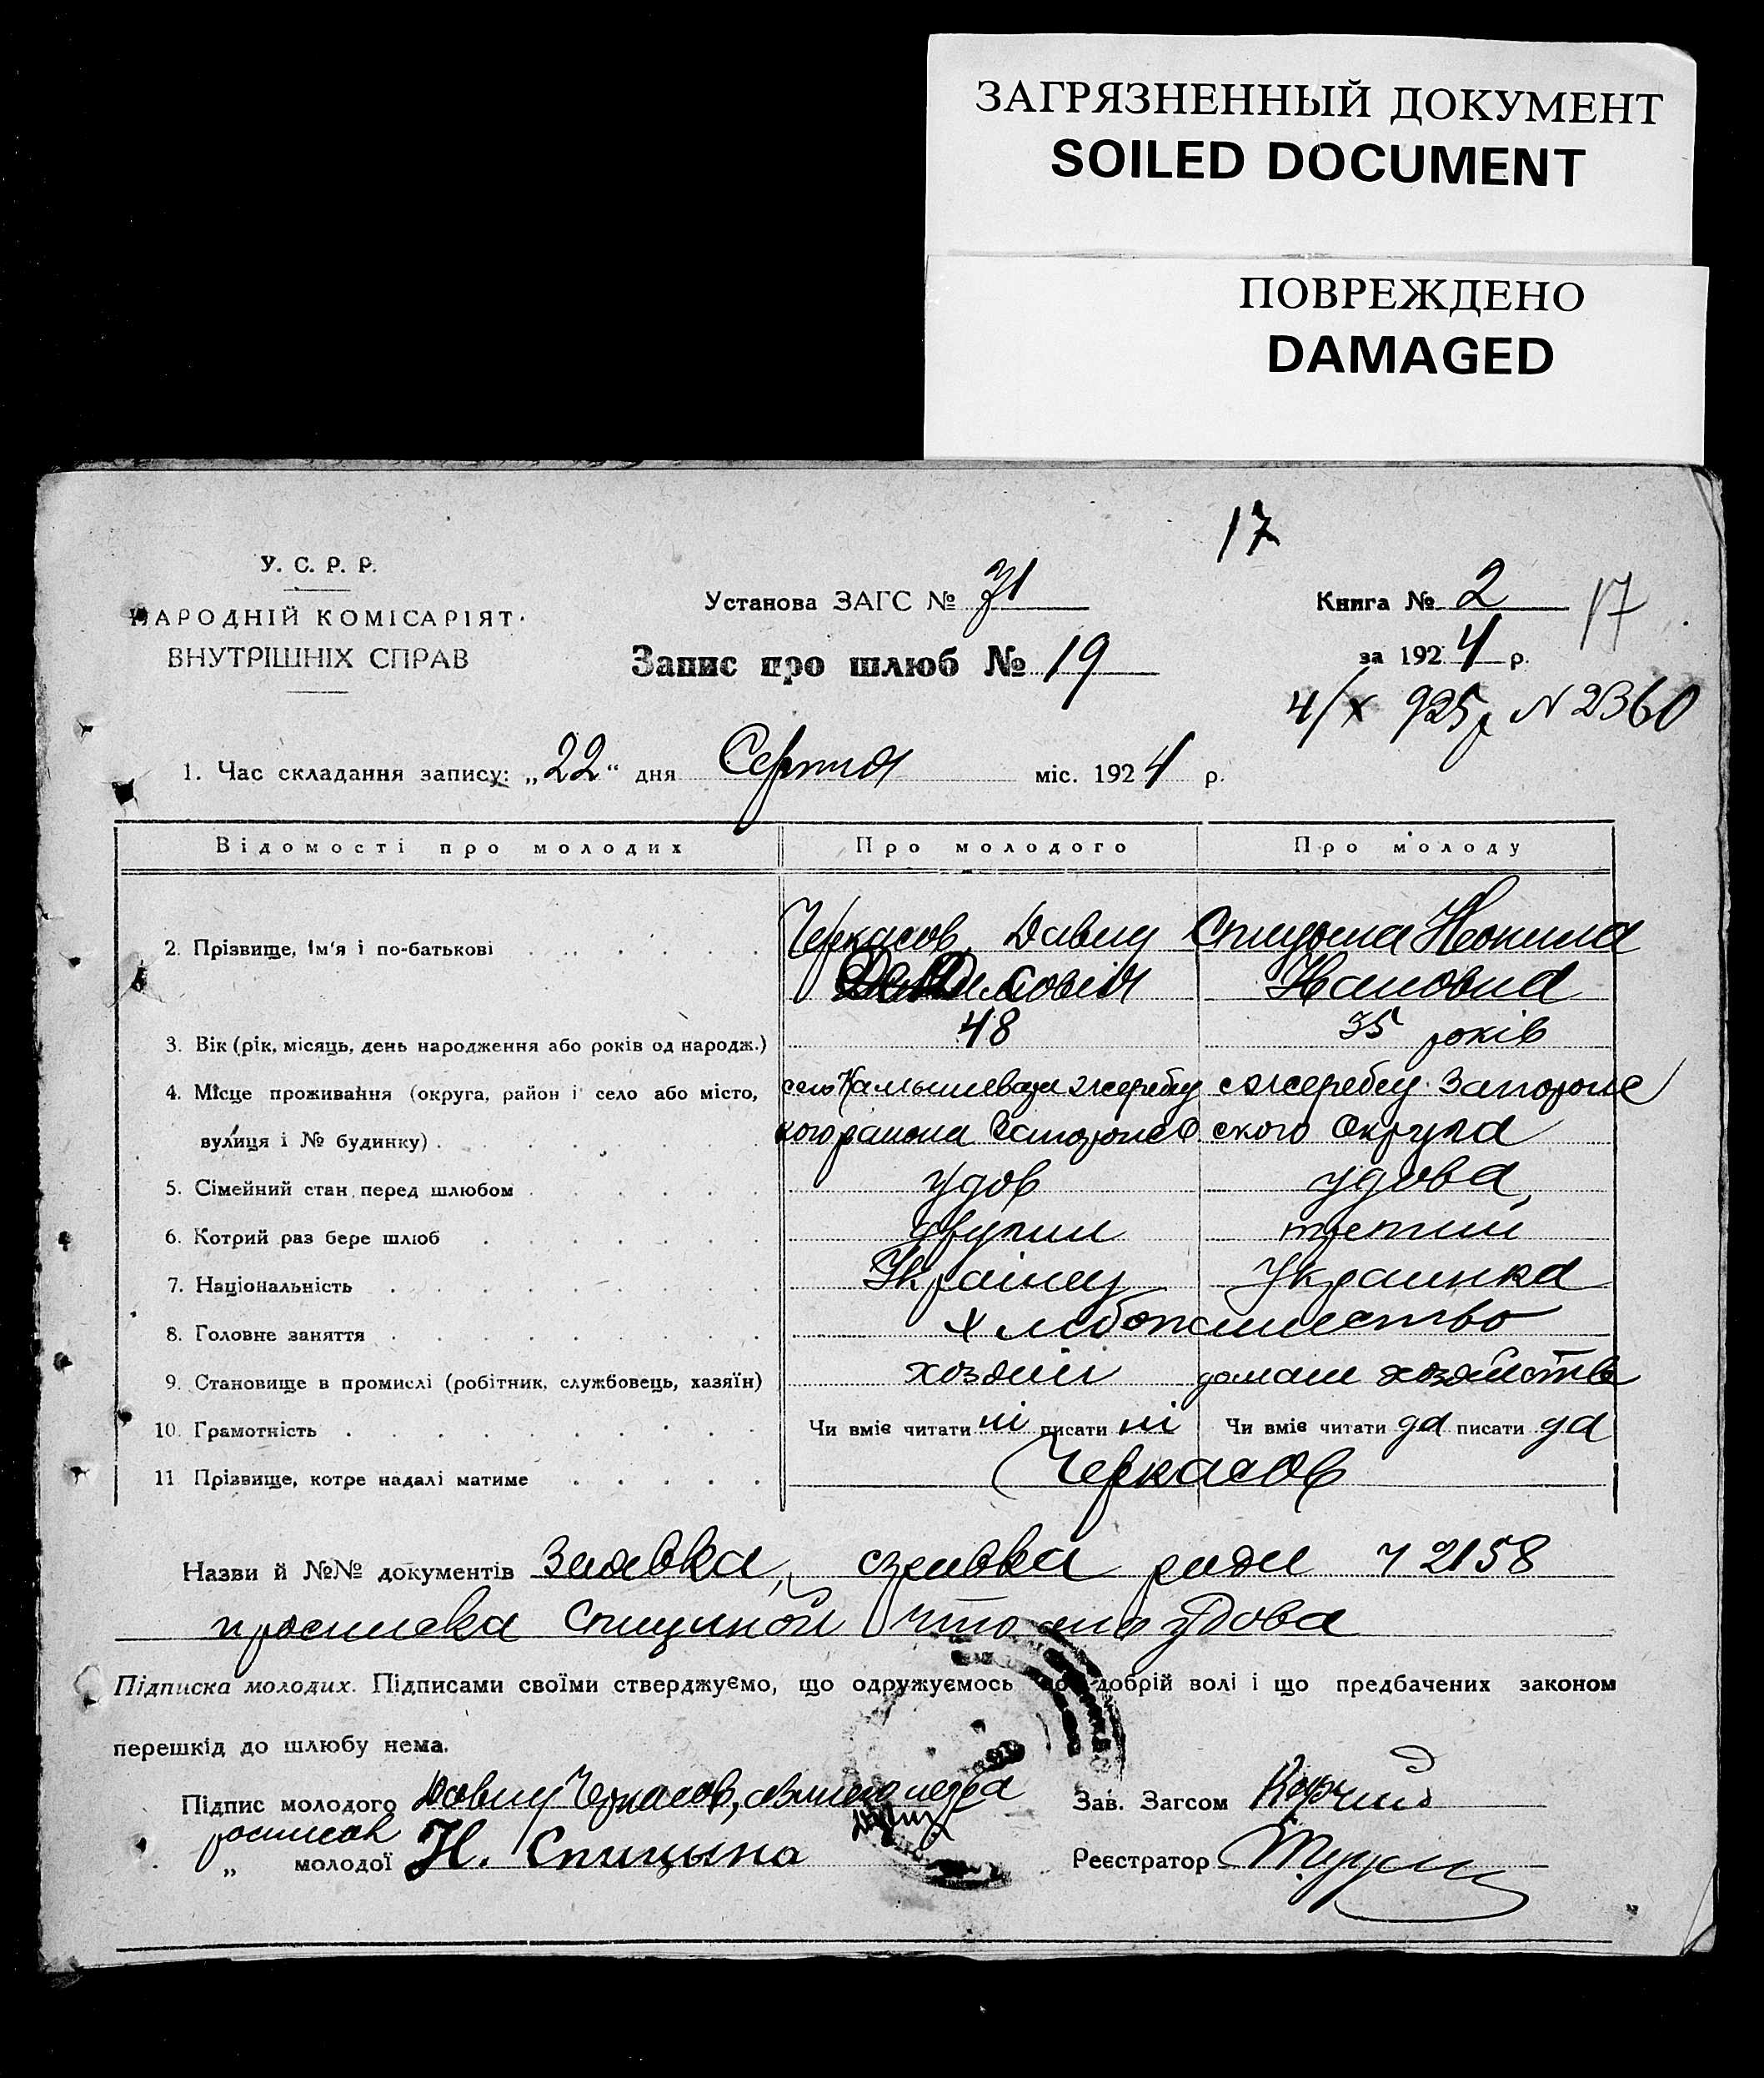 ЗАГРЯЗНЕННЫЙ ДОКУМЕНТ
SOILED DOCUMENT
ПОВРЕЖДЕНО
DAMAGED
17
У. С. Р. Р.
НАРОДНІЙ КОМІСАРІЯТ
ВНУТРІШНІХ СПРАВ
Установа ЗАГС № 31
Запис про шлюб № 19
Книга № 2
17
за 1924 р.
4/X 925р N 2360
1. Час складання запису: „22" дня Серпня міс. 1924 р.
Відомості про молодих Про молодого Про молоду
2. Прізвище, ім'я і по-батькові Черкасов Давид Спицына Неонила
Ивановна
3. Вік (рік, місяць, день народження або років од народж.) 48 35 років
4. Місце проживання (округа, район і село або місто, село Камышеваха жеребец
вулиця і № будинку) кого района ского Округа
5. Сімейний стан перед шлюбом удов удова
6. Котрий раз бере шлюб другий третий
7. Національність Українец Украинка
8. Головне заняття хлібопашество
9. Становище в промислі (робітник, службовець, хазяїн) хозяин домаш хозяйство
10. Грамотність Чи вміє читати ні писати ні Чи вміє читати да писати да
11 Прізвище, котре надалі матиме Черкасов
Назви й №№ документів Заявка, ради 2158
Спициной что она удова
Підписка молодих. Підписами своїми стверджуємо, що одружуємось по добрій волі і що предбачених законом
перешкід до шлюбу нема.
Підпис молодого Давид Черкасов,
„ молодої Н. Спицына
Зав. Загсом
Реєстратор